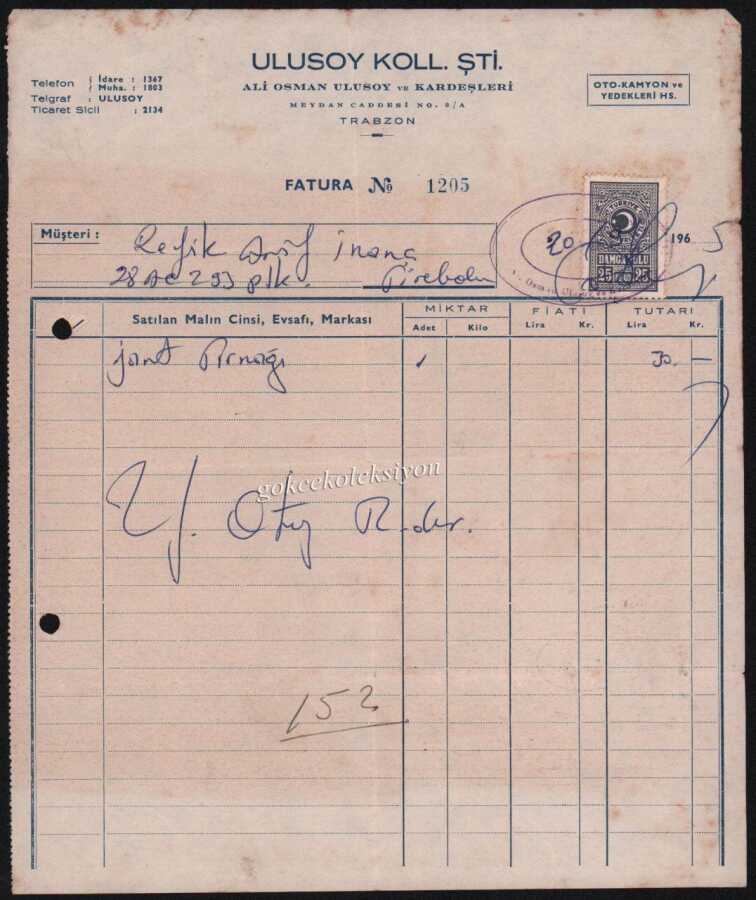 ULUSOY KOLL. ŞTİ.
ALİ OSMAN ULUSOY ve KARDEŞLERİ
MEYDAN CADDESİ NO. 8/A
TRABZON
Telefon { İdare : 1367
Muha. : 1803
Telgraf : ULUSOY
Ticaret Sicil : 2134
OTO-KAMYON ve
YEDEKLERİ HS.
FATURA № 1205
TÜRKİYE
DAMGA PULU
25 25
20 196 5
Müşteri : Refik İnanç
28 AC 293 plk. Tirebolu
Satılan Malın Cinsi, Evsafı, Markası
MİKTAR FİATI TUTARI
Adet Kilo Lira Kr. Lira Kr.
jant Tırnağı 1 30. —
gokcekoleksiyon
Y. Otuz
152